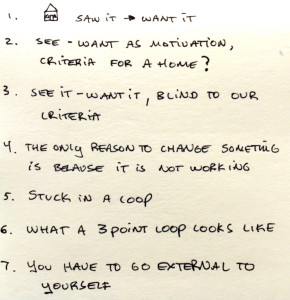 1. SAW iT → WANT iT
2. SEE - WANT AS MOTiVATiON,
CRiTERiA FOR A HOME?
3. SEE iT - WANT iT, BLiND TO OUR
CRiTERiA
4. THE ONLY REASON TO CHANGE SOMETiNG
iS BECAUSE iT iS NOT WORKiNG
5. STUCK iN A LOOP
6. WHAT A 3 POiNT LOOP LOOKS LiKE
7. YOU HAVE TO GO EXTERNAL TO
YOURSELF